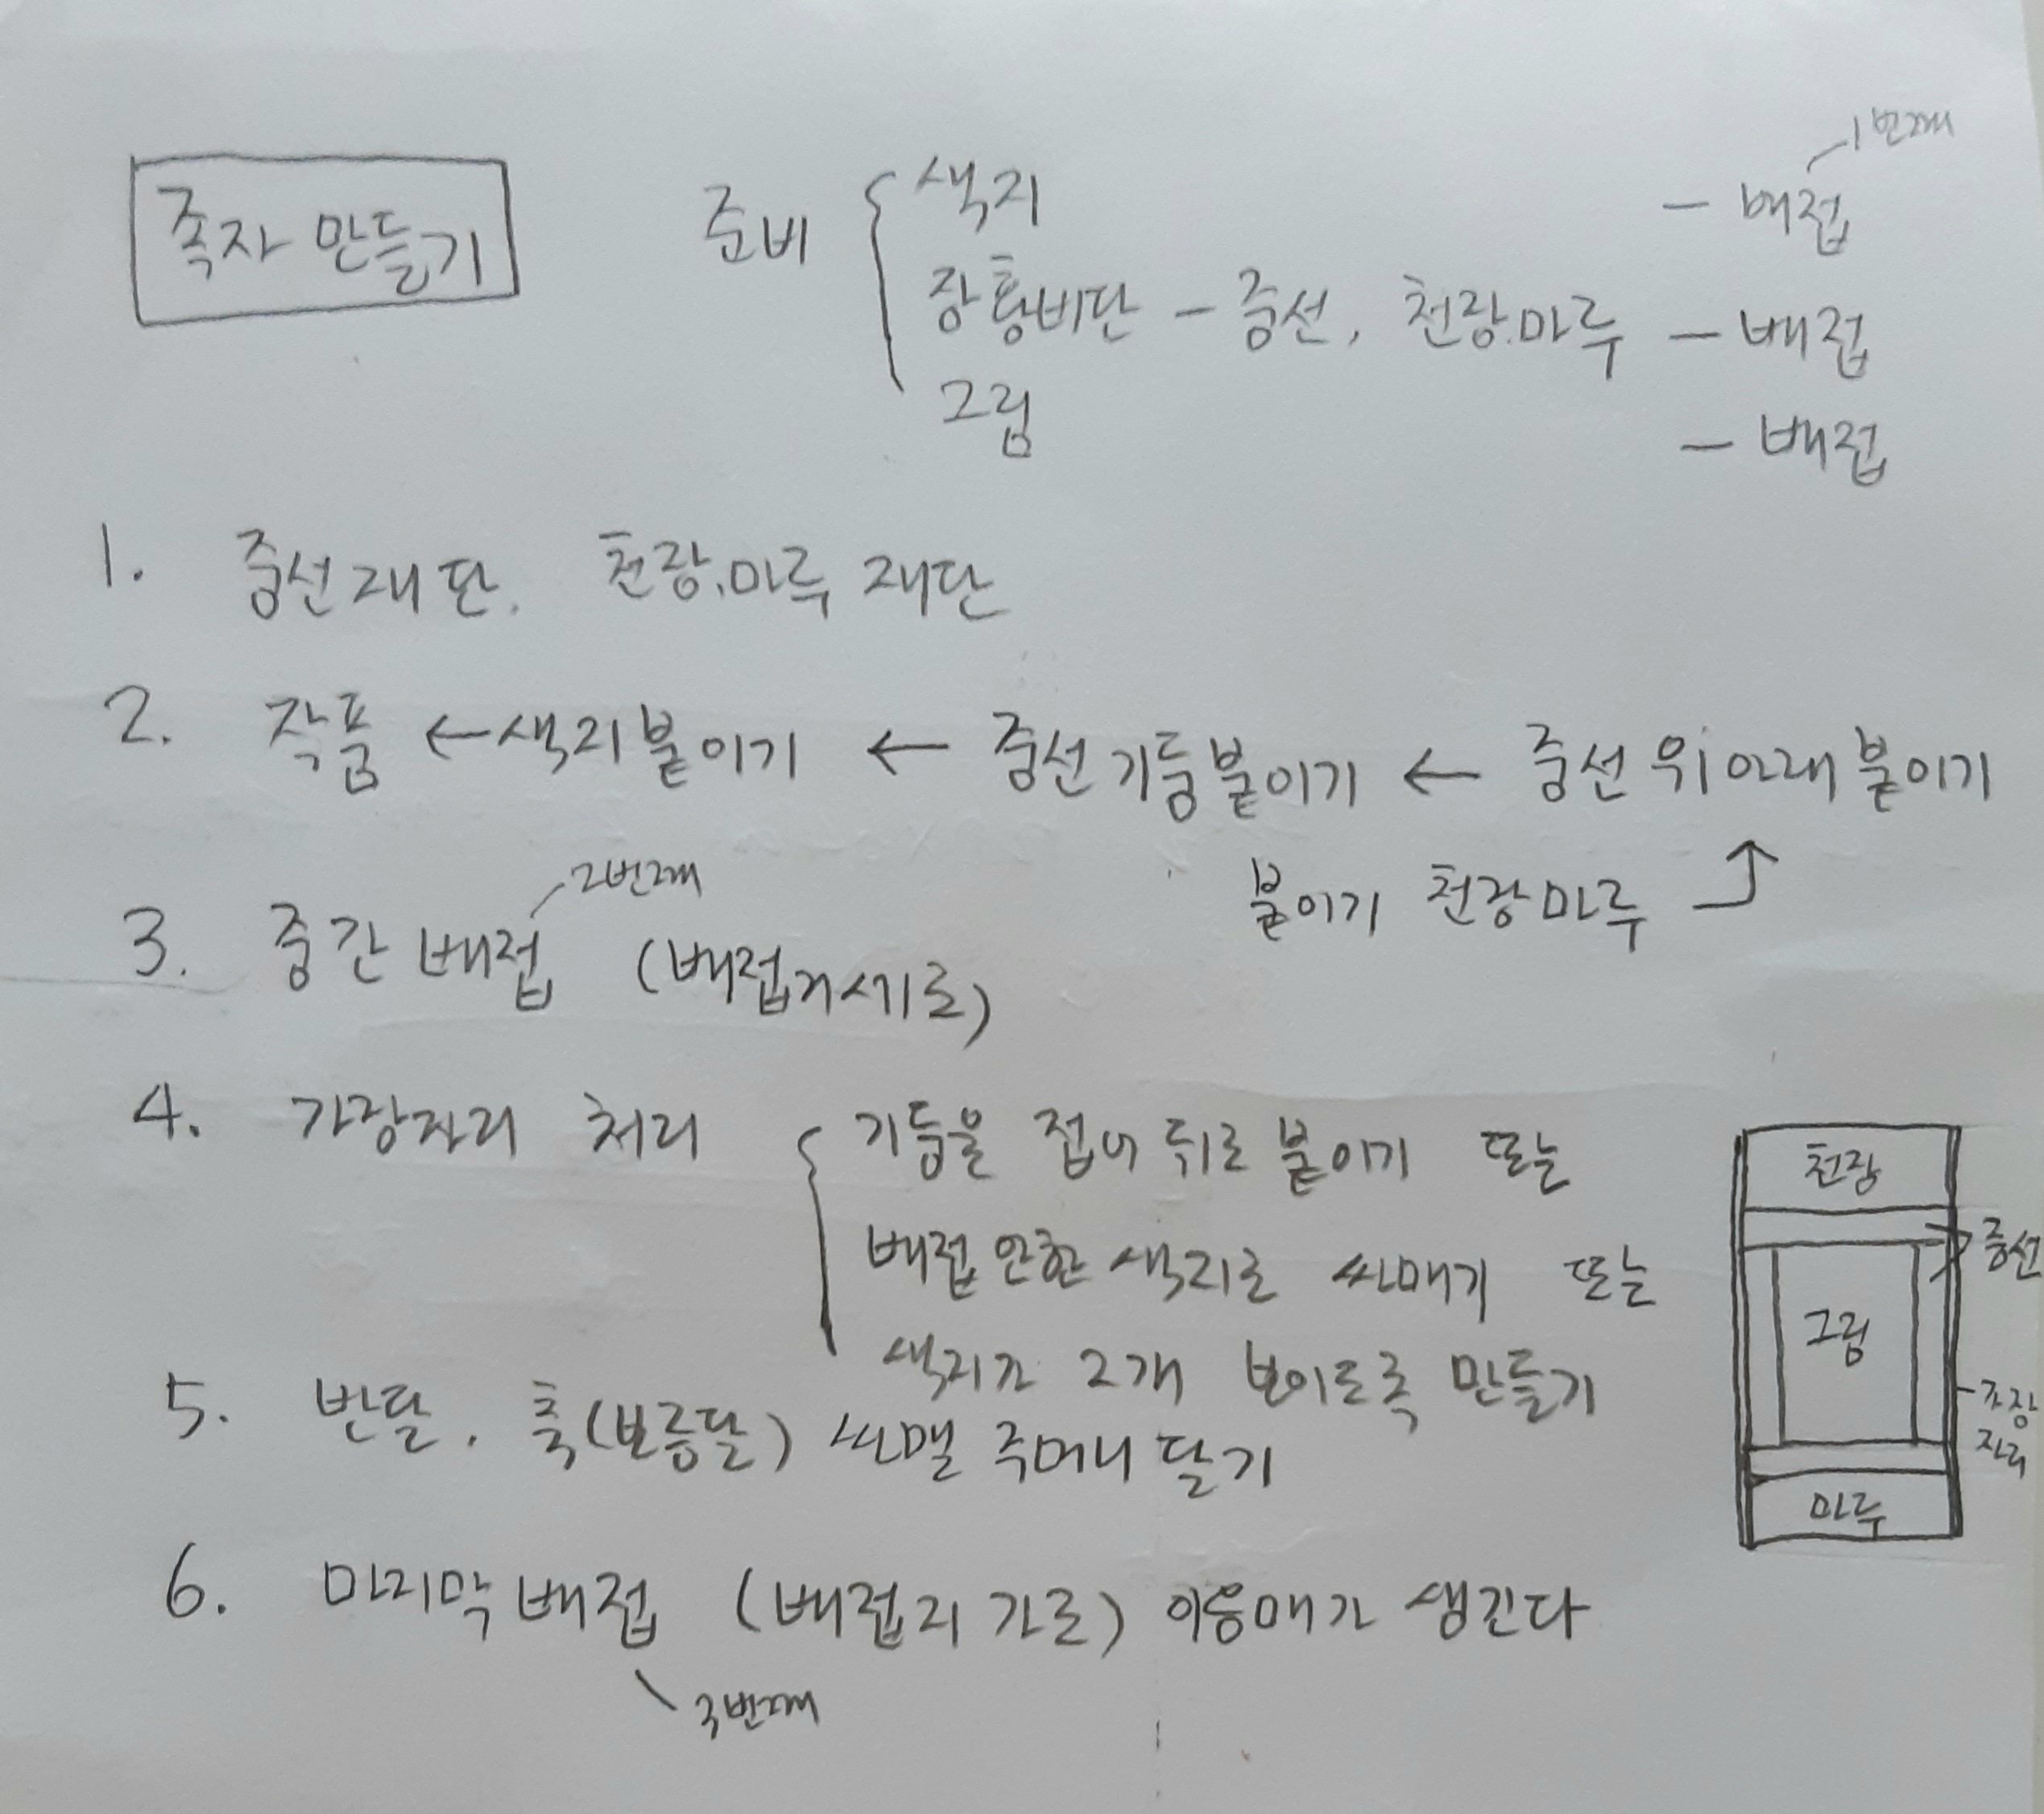 족자 만들기
준비 { 색지 - 배접 1번째
장황비단 - 중선, 천장.마루 - 배접
그림 - 배접
1. 중선재단, 천장.마루 재단
2. 작품 ← 색지붙이기 ← 중선기둥붙이기 ← 중선위아래붙이기
붙이기 천장마루
3. 중간배접 (배접지세로)
2번째
4. 가장자리 처리 { 기둥을 접어 뒤로 붙이기 또는
배접안한 색지로 싸매기 또는
색지가 2개 보이도록 만들기
5. 반달, 축(보름달) 싸맬 주머니 달기
6. 마지막배접 (배접지 가로) 이음매가 생긴다
3번째
천장
중선
그림
가장
자리
마루